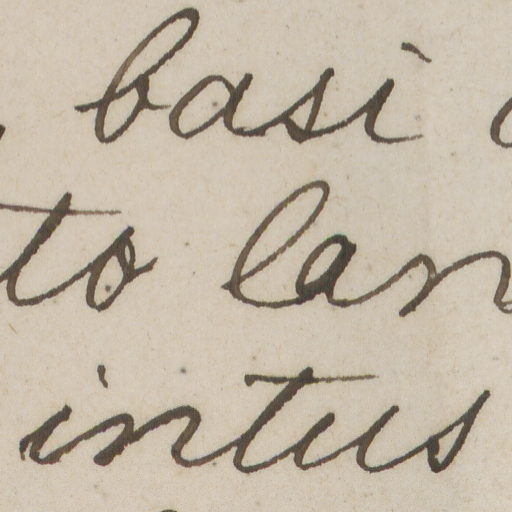 basi
to lan
intus